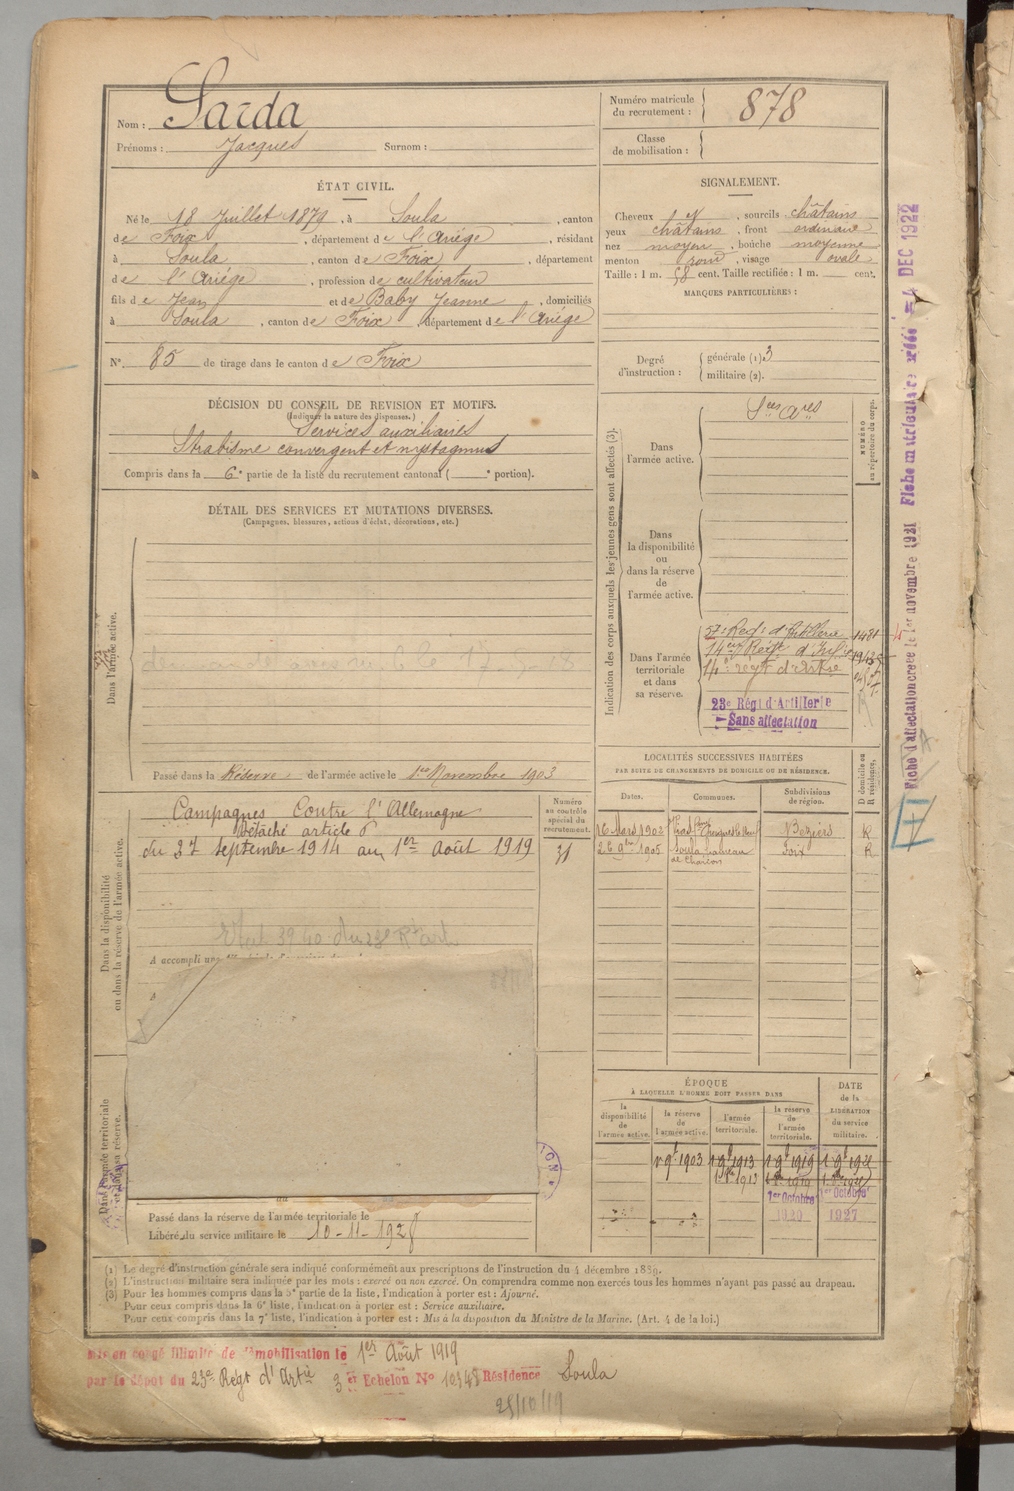 Nom : Sarda
Prénoms : Jacques Surnom :
Numéro matricule du recrutement : 878
Classe de mobilisation :
ÉTAT CIVIL.
Né le 18 Juillet 1879, à Soula, canton
de Foix, département de l'Ariége, résidant
à Soula, canton de Foix, département
de l'Ariége, profession de cultivateur
fils de Jean et de Baby Jeanne, domiciliés
à Soula, canton de Foix, département de l'Ariége
N° 85 de tirage dans le canton de Foix
SIGNALEMENT.
Cheveux , sourcils châtains
yeux châtains, front ordinaire
nez moyen, bouche moyenne
menton rond, visage ovale
Taille : 1 m. 58 cent. Taille rectifiée : 1 m. cent.
MARQUES PARTICULIÈRES :
Degré d'instruction : générale (1). 3
militaire (2).
DÉCISION DU CONSEIL DE REVISION ET MOTIFS.
(Indiquer la nature des dispenses.)
Services auxiliaires
Strabisme convergent et nystagmus
Compris dans la 6e partie de la liste du recrutement cantonal ( e portion).
DÉTAIL DES SERVICES ET MUTATIONS DIVERSES.
(Campagnes, blessures, actions d'éclat, décorations, etc.)
Dans l'armée active.
Passé dans la Réserve de l'armée active le 1er Novembre 1903
Dans la disponibilité ou dans la réserve de l'armée active.
Campagnes Contre l'Allemagne
Détaché article 6
du 27 Septembre 1914 au 1er Août 1919
Numéro au contrôle spécial du recrutement.
31
A accompli une
Dans l'armée territoriale et dans sa réserve.
Passé dans la réserve de l'armée territoriale le
Libéré du service militaire le 10-11-1928
Indication des corps auxquels les jeunes gens sont affectés (3).
NUMÉRO au répertoire du corps.
Dans l'armée active.
Sces Ares
Dans la disponibilité ou dans la réserve de l'armée active.
Dans l'armée territoriale et dans sa réserve.
57e Reg: d'Artillerie 1481
14e Régt d'Inf
14e régt d'Artie
23e Régt d'Artillerie
Sans affectation
LOCALITÉS SUCCESSIVES HABITÉES
PAR SUITE DE CHANGEMENTS DE DOMICILE OU DE RÉSIDENCE.
Dates. Communes. Subdivisions de région. D domicile ou R résidence.
16 Mars 1902 Béziers R
26 9bre 1905 Soula hameau de Charcon Foix R
ÉPOQUE
À LAQUELLE L'HOMME DOIT PASSER DANS
la disponibilité de l'armée active. la réserve de l'armée active. l'armée territoriale. la réserve de l'armée territoriale. DATE de la LIBÉRATION du service militaire.
1 9bre 1903 1 9bre 1913 1 9bre 1919
1er Octobre 1920 1er Octobre 1927
(1) Le degré d'instruction générale sera indiqué conformément aux prescriptions de l'instruction du 4 décembre 1889.
(2) L'instruction militaire sera indiquée par les mots : exercé ou non exercé. On comprendra comme non exercés tous les hommes n'ayant pas passé au drapeau.
(3) Pour les hommes compris dans la 5e partie de la liste, l'indication à porter est : Ajourné.
Pour ceux compris dans la 6e liste, l'indication à porter est : Service auxiliaire.
Pour ceux compris dans la 7e liste, l'indication à porter est : Mis à la disposition du Ministre de la Marine. (Art. 4 de la loi.)
Mis en congé illimité de démobilisation le 1er Août 1919
par le dépôt du 23e Régt d'Artie 3e Echelon N° 10348 Résidence Soula
25/10/19
Fiche d'affectation créée le 1er novembre 1921 Fiche matriculaire créée 4 DEC 1922